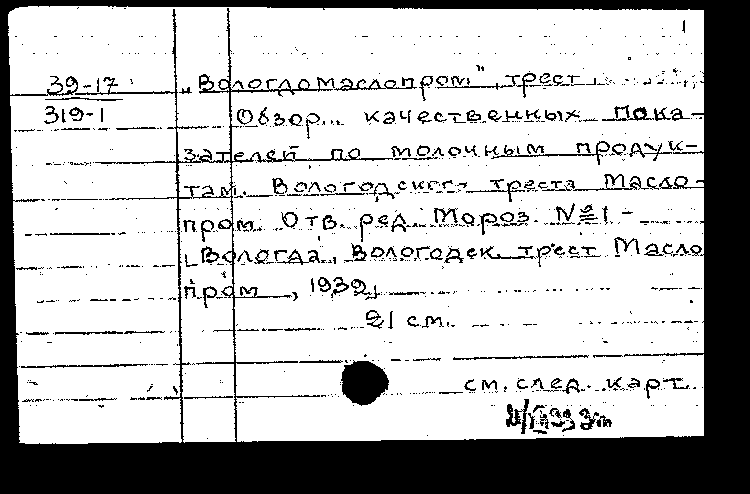 1
39-17 „Вологдомаслопром", трест
319-1 Обзор.. качественных пока-
зателей по молочным продук-
там. Вологодского треста Масло-
пром. Отв. ред. Мороз. № 1 -
Вологда, Вологодск. трест Масло
пром , 1939,
21 см.
см. след. карт.